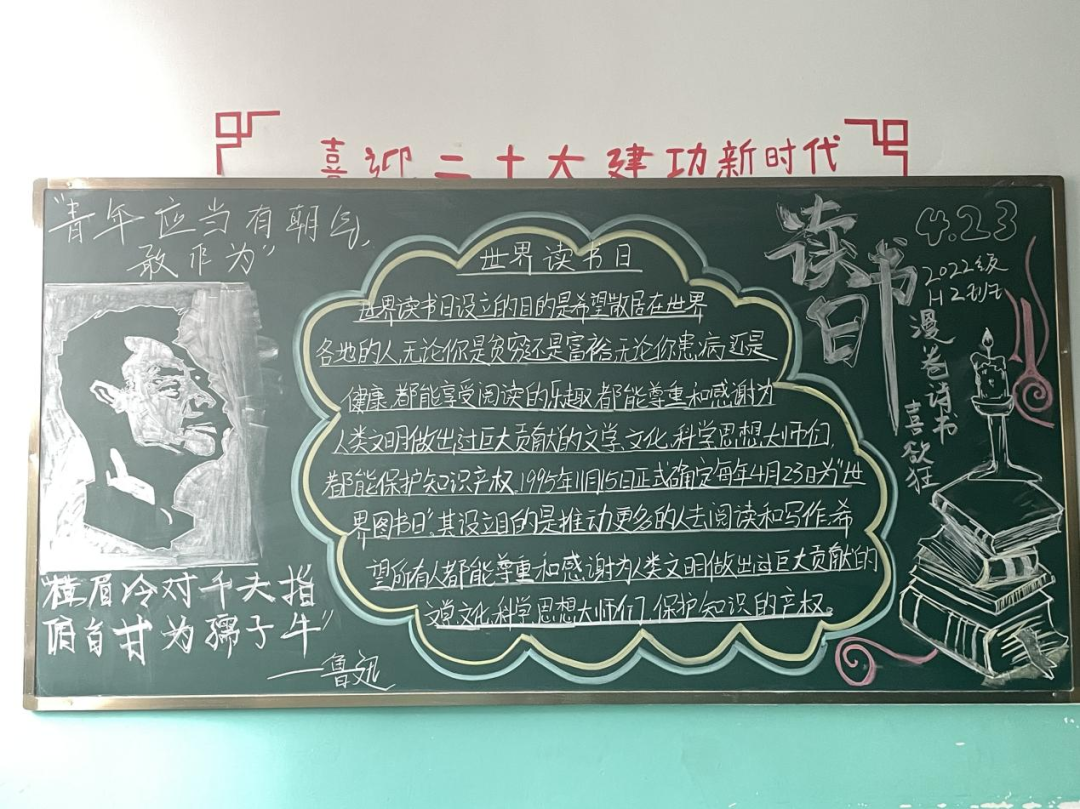 喜迎二十大建功新时代
"青年应当有朝气,
敢作为"
"横眉冷对千夫指
俯首甘为孺子牛"
——鲁迅
世界读书日
世界读书日设立的目的是希望散居在世界
各地的人,无论你是贫穷还是富裕,无论你患病还是
健康,都能享受阅读的乐趣,都能尊重和感谢为
人类文明做出过巨大贡献的文学、文化、科学思想大师们,
都能保护知识产权。1995年11月15日正式确定每年4月23日为"世
界图书日",其设立目的是推动更多的人去阅读和写作,希
望所有人都能尊重和感谢为人类文明做出过巨大贡献的
文学、文化、科学思想大师们,保护知识的产权。
读书日
4.23
2022级
H2班
漫卷诗书
喜欲狂